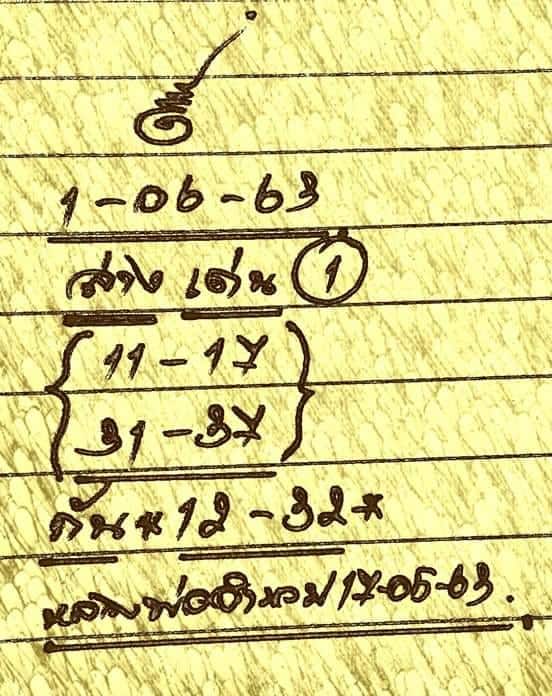 1-06-63
ล่าง เด่น 1
11-17
31-37
กัน*12-32*
หลวงพ่ออำนวย 17-05-63.